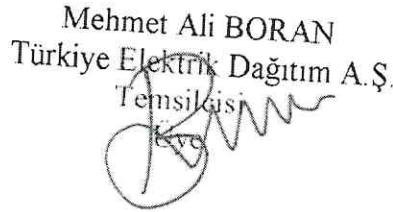 Mehmet Ali BORAN
Türkiye Elektrik Dağıtım A.Ş.
Temsilcisi
Üye